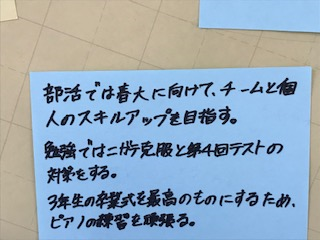 部活では春大に向けて、チームと個
人のスキルアップを目指す。
勉強ではニガテ克服と第4回テストの
対策をする。
3年生の卒業式を最高のものにするため、
ピアノの練習を頑張る。